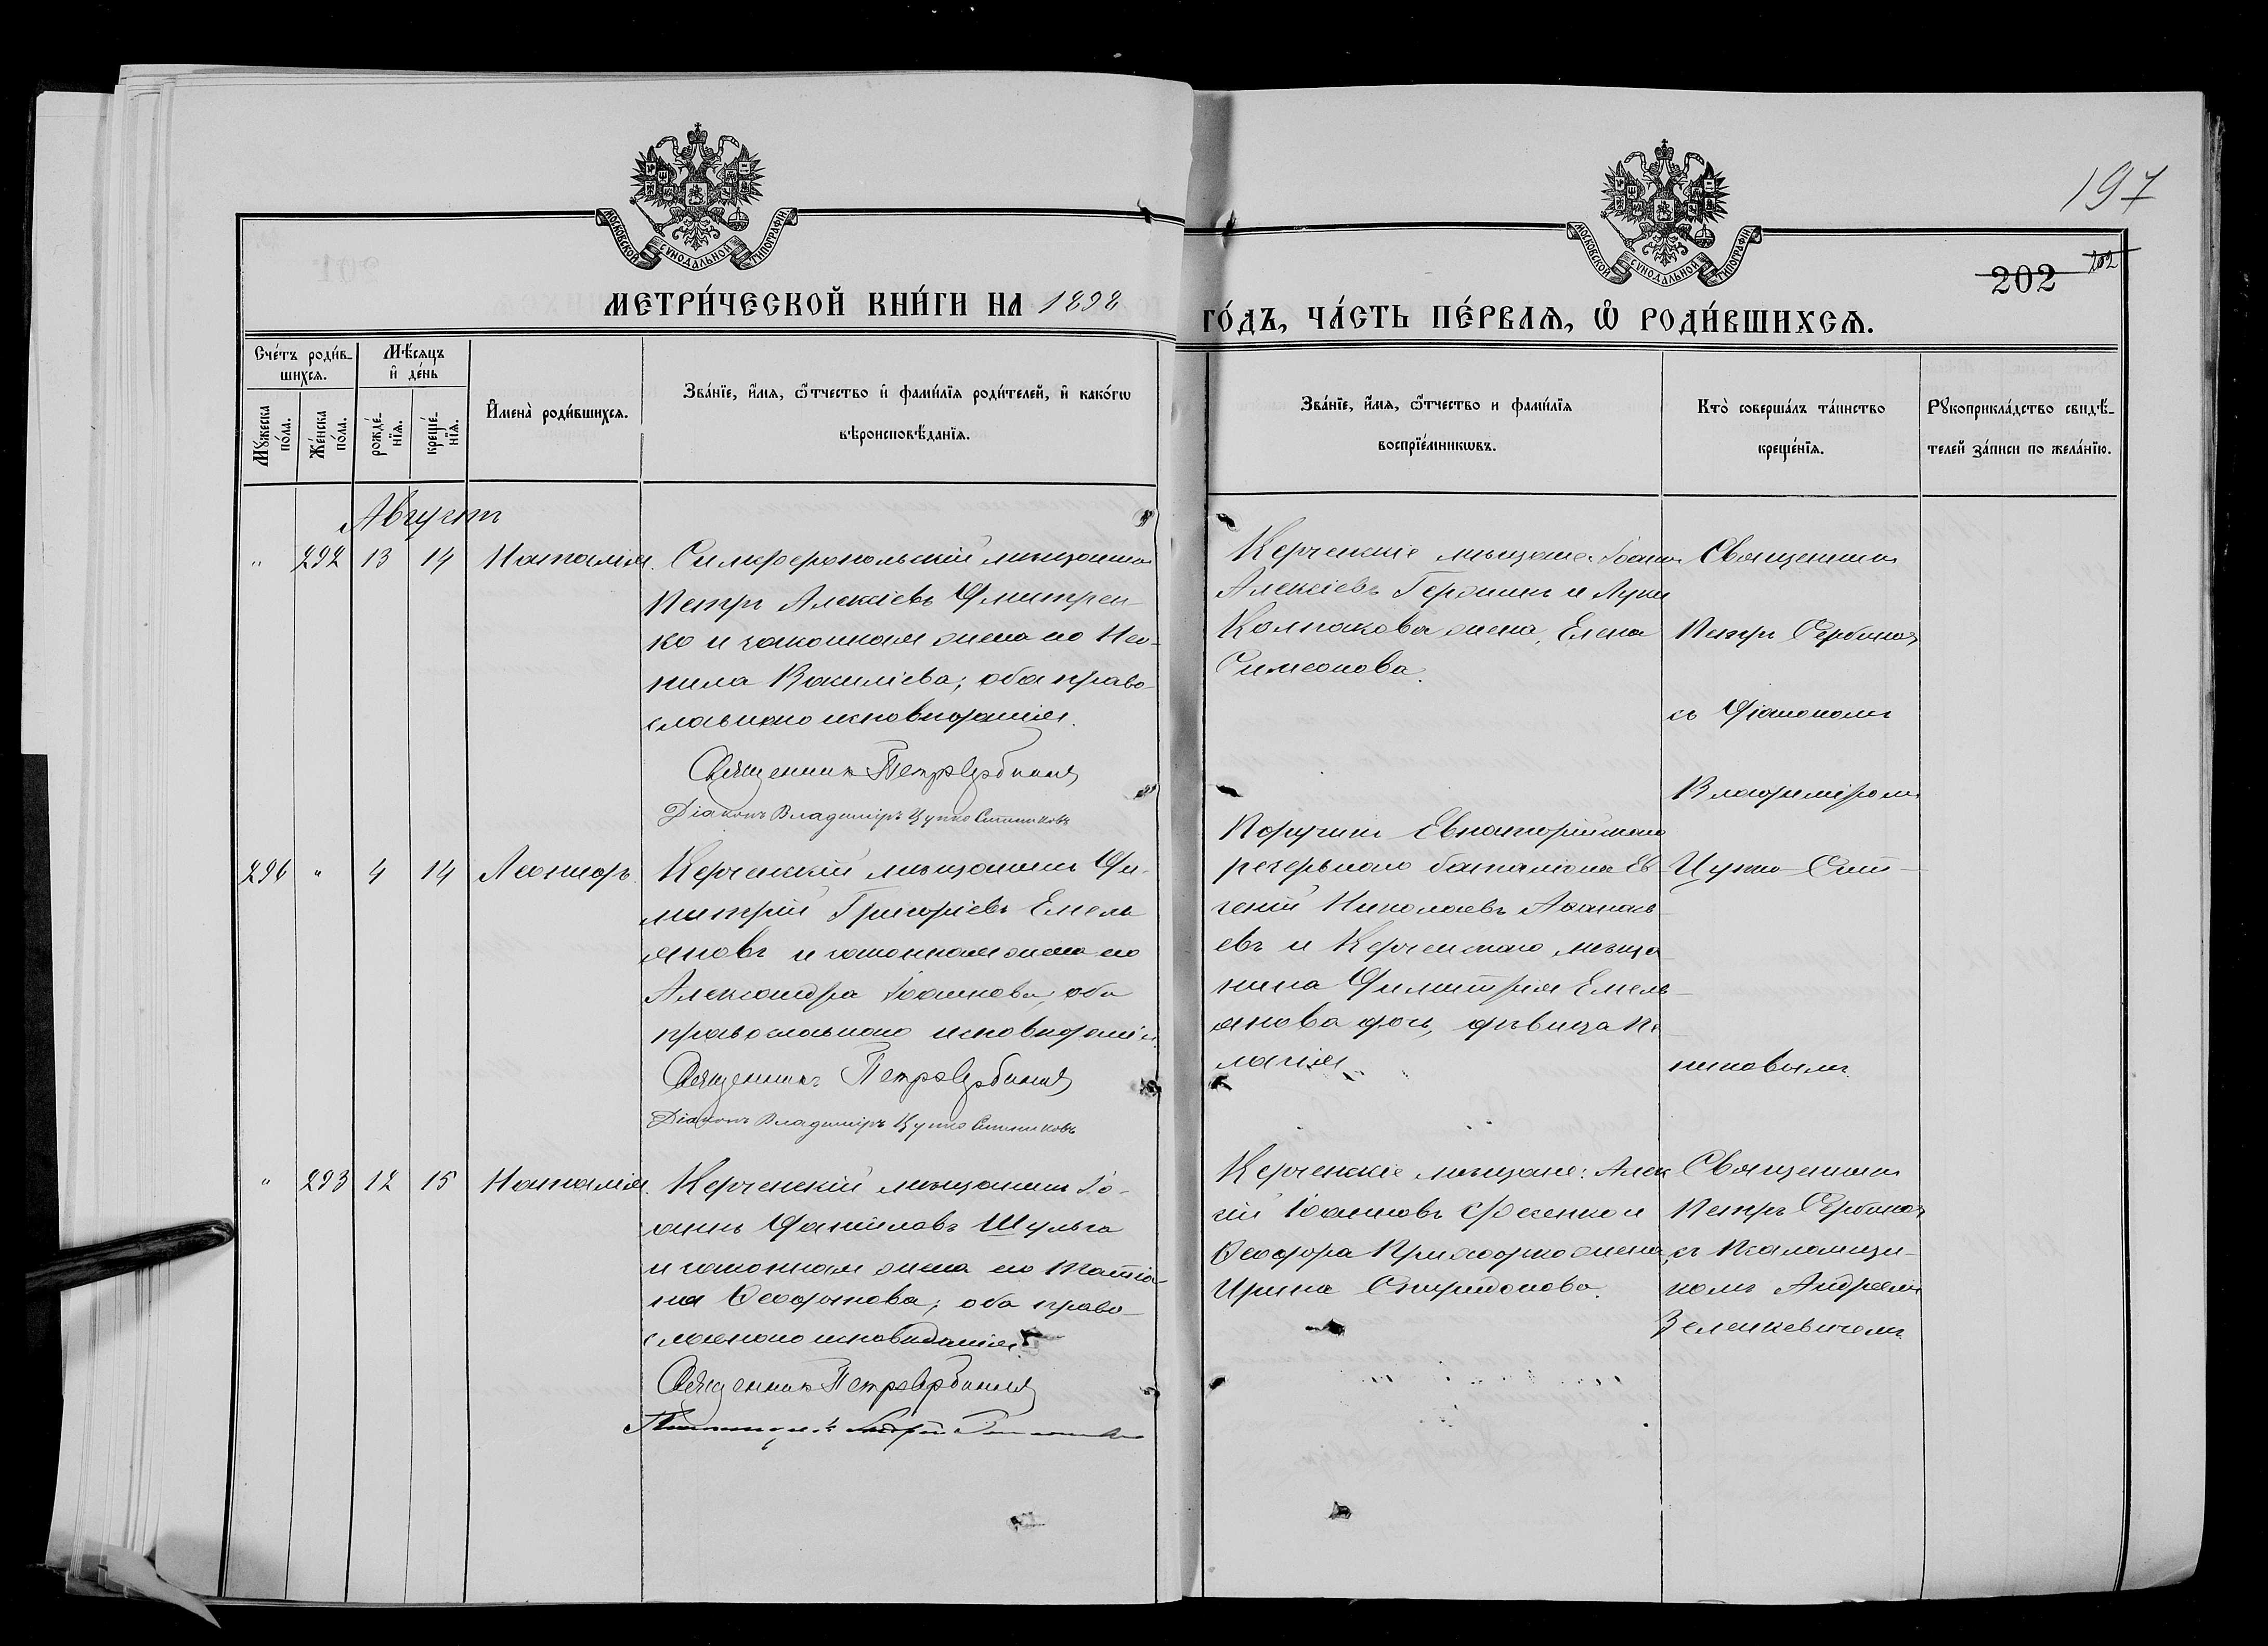 197
202
202
МОСКОВСКОЙ СѴНОДАЛЬНОЙ ТИПОГРАФІИ
МОСКОВСКОЙ СѴНОДАЛЬНОЙ ТИПОГРАФІИ
МЕТРИ́ЧЕСКОЙ КНИ́ГИ НА 1898
ГО́ДЪ, ЧА́СТЬ ПЕ́РВАѦ, Ѡ РОДИ́ВШИХСѦ.
Сче́тъ роди́в-
шихсѧ.
Мꙋ́жеска
по́ла.
Же́нска
по́ла.
Мѣ́сѧцъ
и҆ де́нь
рожде́-
нїѧ.
креще́-
нїѧ.
И҆мена̀ роди́вшихсѧ.
Зва́нїе, и҆́мѧ, ѻ҆́тчество и҆ фами́лїѧ роди́телей, и҆ како́гѡ
вѣроисповѣ́данїѧ.
Зва́нїе, и҆́мѧ, ѻ҆́тчество и фами́лїѧ
воспрїе́мникѡвъ.
Кто̀ соверша́лъ та́инство
креще́нїѧ.
Рꙋкоприкла́дство свидѣ́-
телей за́писи по жела́нїю.
Августъ
" 292 13 14 Наталія.
Симферопольскій мѣщанинъ
Петръ Алексіевъ Дмитрен-
ко и законная жена его Нео-
нила Василіева; оба право-
славнаго исповѣданія.
Священникъ Петръ Сербиновъ
Діаконъ Владиміръ Цупко Ситниковъ
Керченскіе мѣщане: Іоаннъ
Алексіевъ Геронинъ и Луки
Колпакова жена, Елена
Симеонова.
Священникъ
Петръ Сербиновъ
съ Діакономъ
Владиміромъ
Цупко-Сит-
никовымъ.
296 " 4 14 Леонидъ.
Керченскій мѣщанинъ Ди-
митрій Григоріевъ Емель
яновъ и законная жена его
Александра Іоаннова, оба
православнаго исповѣданія.
Священникъ Петръ Сербиновъ
Діаконъ Владиміръ Цупко Ситниковъ
Поручикъ Евпаторійскаго
резервнаго баталіона Ев-
геній Николаевъ Аѳанась-
евъ и Керченскаго мѣща-
нина Димитрія Емель-
янова дочь, дѣвица Пе-
лагія.
" 293 12 15 Наталія.
Керченскій мѣщанинъ Іо-
аннъ Даніиловъ Шульга
и законная жена его Татіа-
на Ѳеодорова; оба право-
славнаго исповѣданія.
Священникъ Петръ Сербиновъ
Керченскіе мѣщане: Алек
сій Іоанновъ и
Ѳеодора Приходько жена,
Ирина Спиридонова.
Священникъ
Петръ Сербиновъ
съ Псаломщи-
комъ Андреемъ
Зеленкевичемъ